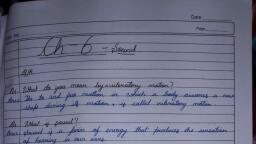 Date
Page
Ch - 6 - Sound
Q/A
Q1. What do you mean by vibratory motion?
Ans. The to and fro motion in which a body assumes a new
shape during its motion, is called vibratory motion.
Q2. What is sound?
Ans. Sound is a form of energy that produces the sensation
of hearing in our ears.